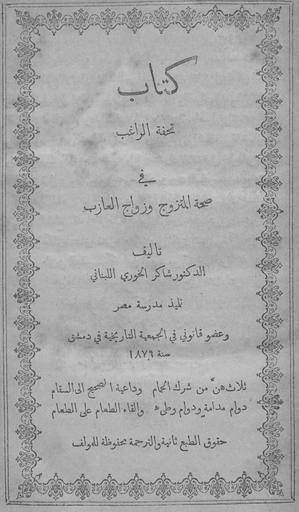 كتاب
تحفة الراغب
في
صحة المتزوج وزواج العازب
تاليف
الدكتور شاكر الخوري اللبناني
تلميذ مدرسة مصر
وعضو قانوني في الجمعية التاريخية في دمشق
سنة ١٨٧٦
ثلاث هن من شرك الحمام وداعية الصحيح الى السقام
دوام مدامة ودوام وطىء والقاء الطعام على الطعام
حقوق الطبع ثانية والترجمة محفوظة للمولف